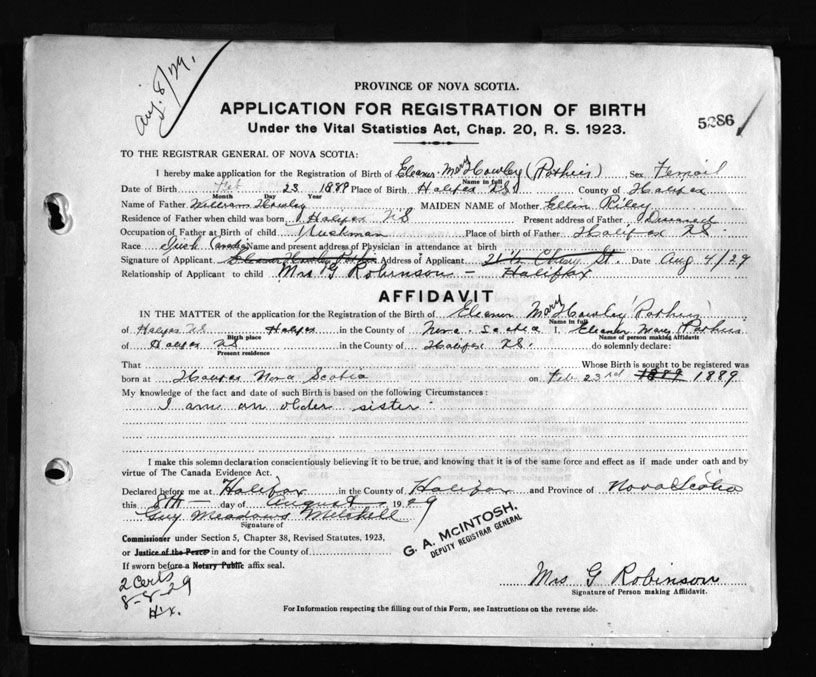 Aug. 8/29.
PROVINCE OF NOVA SCOTIA.
APPLICATION FOR REGISTRATION OF BIRTH
5286
Under the Vital Statistics Act, Chap. 20, R. S. 1923.
TO THE REGISTRAR GENERAL OF NOVA SCOTIA:
I hereby make application for the Registration of Birth of Eleanor Mary Howley (Perkins) Sex Femail
Name in full
Date of Birth Feb 23 1889 Place of Birth Halifax NS County of Halifax
Month Day Year
Name of Father William Howley MAIDEN NAME of Mother Ellen Riley
Residence of Father when child was born Halifax NS Present address of Father
Occupation of Father at Birth of child Truckman Place of birth of Father Halifax NS
Race Irish Canada Name and present address of Physician in attendance at birth
Signature of Applicant Eleanor Howley Perkins Address of Applicant 21½ St. Date Aug 4/29
Relationship of Applicant to child Mrs G Robinson - Halifax
AFFIDAVIT
IN THE MATTER of the application for the Registration of the Birth of Eleanor Mary Howley
Name in full
of Halifax NS Halifax in the County of Nova Scotia I, Eleanor Mary Perkins
Birth place Name of person making Affidavit
of Halifax NS in the County of Halifax NS. do solemnly declare:
Present residence
That Whose Birth is sought to be registered was
born at Halifax Nova Scotia on Feb. 23rd 1889 1889
My knowledge of the fact and date of such Birth is based on the following Circumstances:
I am an older sister
I make this solemn declaration conscientiously believing it to be true, and knowing that it is of the same force and effect as if made under oath and by
virtue of The Canada Evidence Act.
Declared before me at Halifax in the County of Halifax and Province of Nova Scotia
this 8th day of August 1929
Guy Meadows Mitchell
Signature of
Commissioner under Section 5, Chapter 38, Revised Statutes, 1923,
or Justice of the Peace in and for the County of
If sworn before a Notary Public affix seal.
G. A. McINTOSH,
DEPUTY REGISTRAR GENERAL
2 Certs
8-8-29
Hx.
Mrs G Robinson
Signature of Person making Affidavit.
For Information respecting the filling out of this Form, see Instructions on the reverse side.